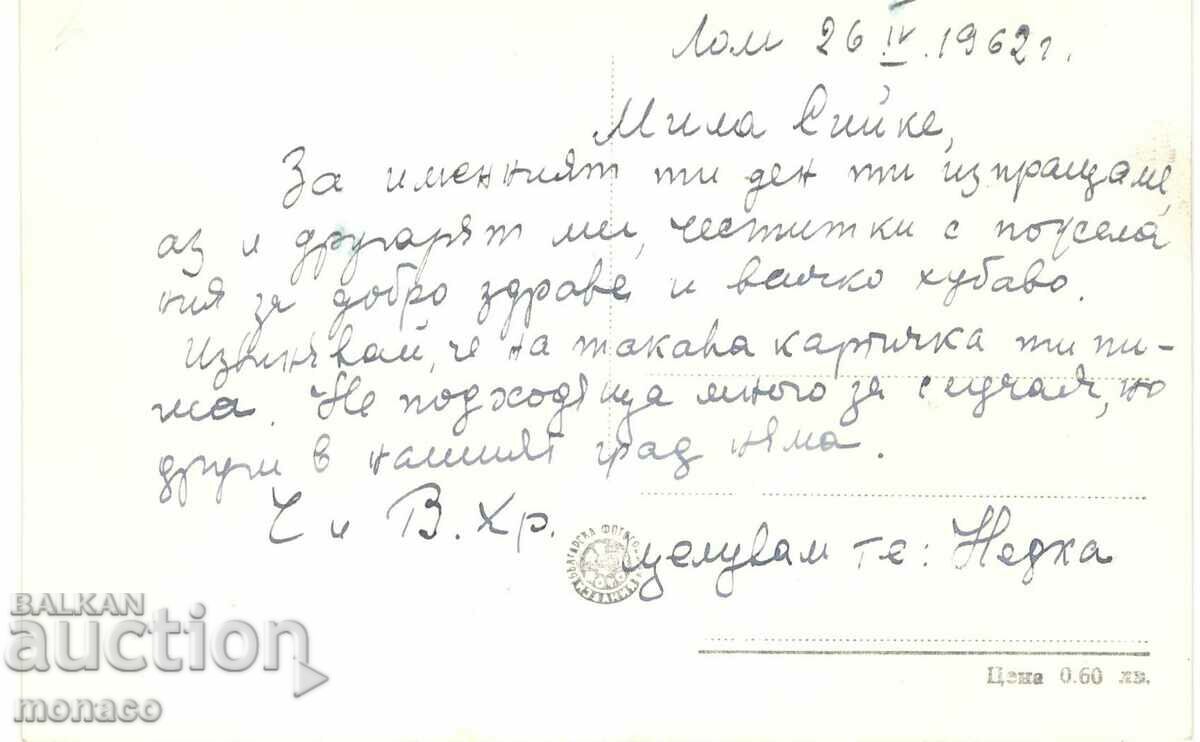 Лом 26 IV. 1962 г.
Мила Сийке,
За именният ти ден ти изпращаме,
аз и другарят ми, честитки с пожела
ния за добро здраве и всичко хубаво.
Извинявай, че на такава картичка ти пи-
ша. Не подходяща много за случая, но
други в нашият град няма.
Ч и В. Хр.
целувам те: Недка
БЪЛГАРСКА
Цена 0.60 лв.
BALKAN
auction
monaco